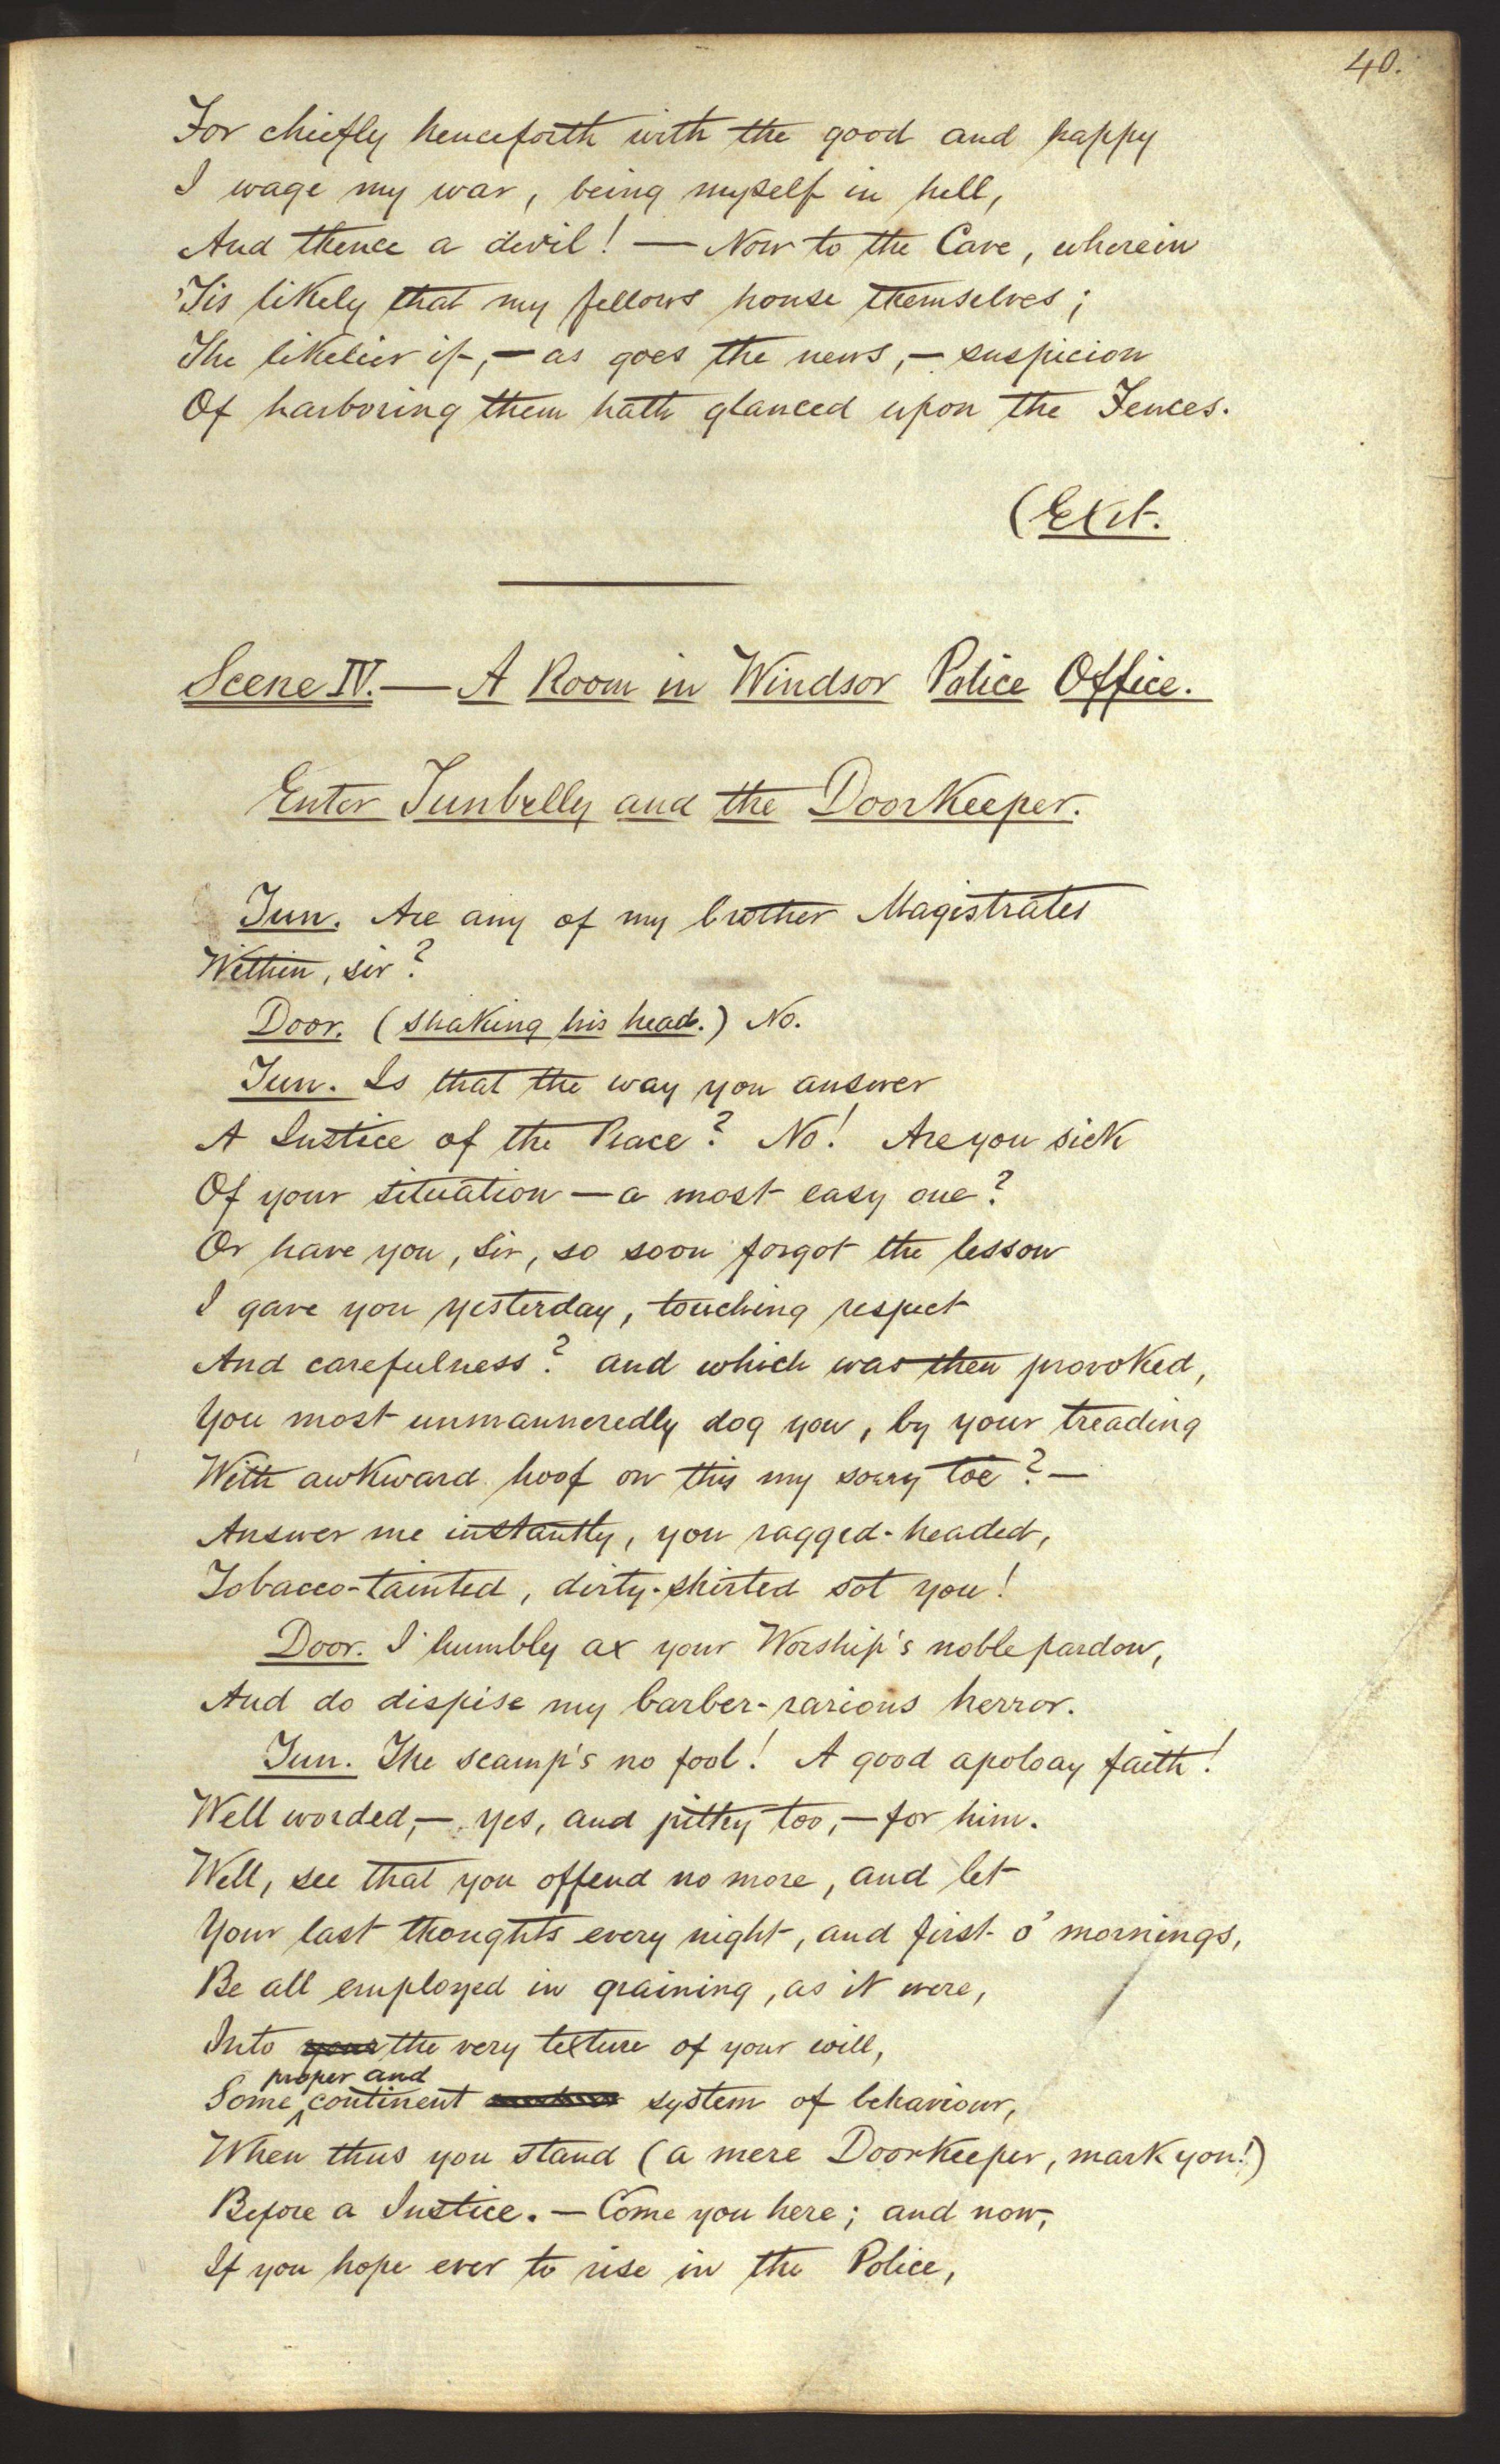 40.
For chiefly henceforth with the good and happy
I wage my war, being myself in hell,
And thence a devil! — Now to the Cave, wherein
'Tis likely that my fellows house themselves;
The likelier if, — as goes the news, — suspicion
Of harboring them hath glanced upon the Fences.
(Exit.
Scene IV. — A Room in Windsor Police Office.
Enter Tunbelly and the Doorkeeper.
Tun. Are any of my brother Magistrates
Within, sir?
Door. (shaking his head.) No.
Tun. Is that the way you answer
A Justice of the Peace? No! Are you sick
Of your situation — a most easy one?
Or have you, sir, so soon forgot the lesson
I gave you yesterday, touching respect
And carefulness? and which was then provoked,
You most unmanneredly dog you, by your treading
With awkward hoof on this my soary toe? —
Answer me instantly, you ragged-headed,
Tobacco-tainted, dirty-shirted sot you!
Door. I humbly ax your Worship's noble pardon,
And do dispise my barber-rarious herror.
Tun. The scamp's no fool! A good apoloay faith!
Well worded, — yes, and pithy too, — for him.
Well, see that you offend no more, and let
Your last thoughts every night, and first o' mornings,
Be all employed in graining, as it were,
Into your the very texture of your will,
proper and
Some continent system of behaviour,
When thus you stand (a mere Doorkeeper, mark you!)
Before a Justice. — Come you here; and now,
If you hope ever to rise in the Police,